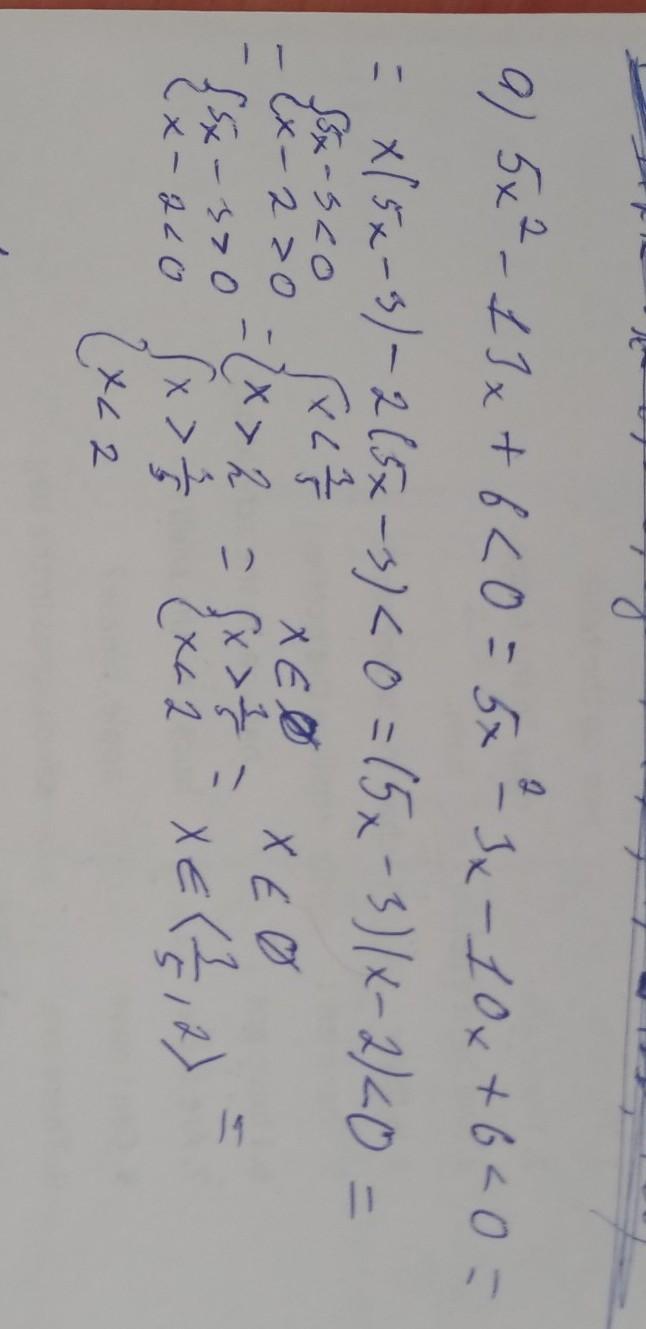 a) 5x² - 13x + 6 < 0 = 5x² - 3x - 10x + 6 < 0 =
= x(5x - 3) - 2(5x - 3) < 0 = (5x - 3)(x - 2) < 0 =
= { 5x - 3 < 0 { x < 3/5 x ∈ ∅
{ x - 2 > 0 = { x > 2 = { x > 3/5 = x ∈ ∅
= { 5x - 3 > 0 { x > 3/5 { x < 2 x ∈ ⟨3/5, 2⟩ =
{ x - 2 < 0 { x < 2